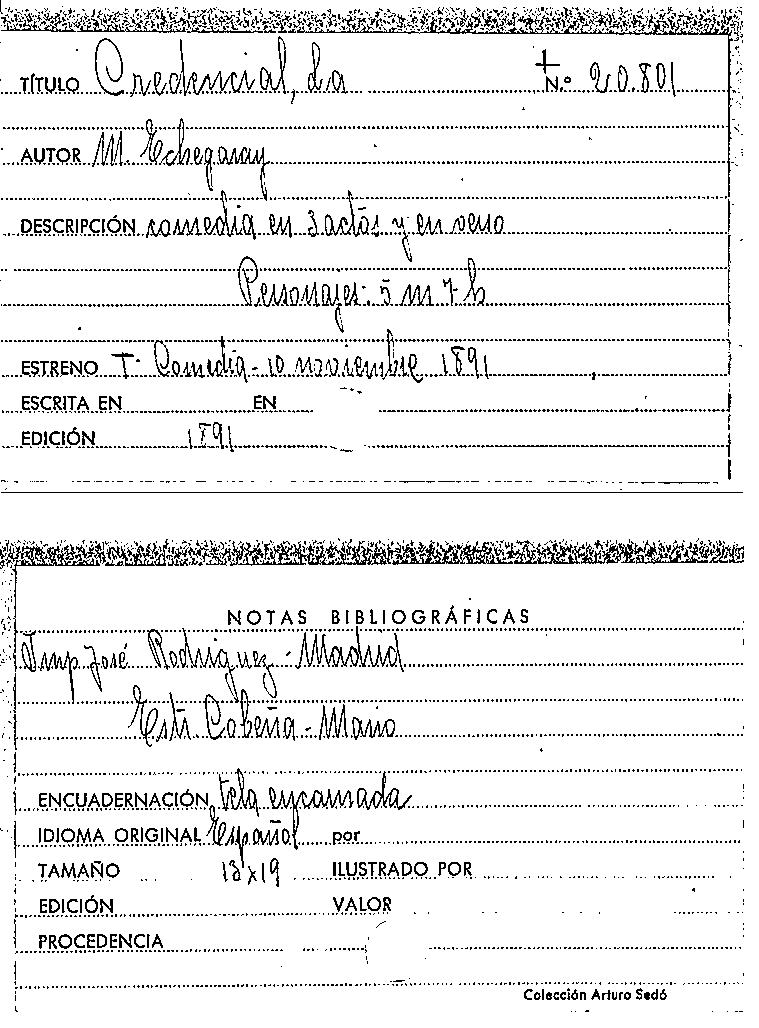 TÍTULO Credencial, La + N.º 20.801
AUTOR M. Echegaray
DESCRIPCIÓN comedia en 3 actos y en verso
Personajes: 5 m 7 h
ESTRENO T. Comedia - 10 noviembre 1891
ESCRITA EN EN
EDICIÓN 1891
NOTAS BIBLIOGRÁFICAS
Imp José Rodriguez - Madrid
Estr. Cobeña - Mario
ENCUADERNACIÓN tela encarnada
IDIOMA ORIGINAL Español por
TAMAÑO 13x19 ILUSTRADO POR
EDICIÓN VALOR
PROCEDENCIA
Colección Arturo Sedó